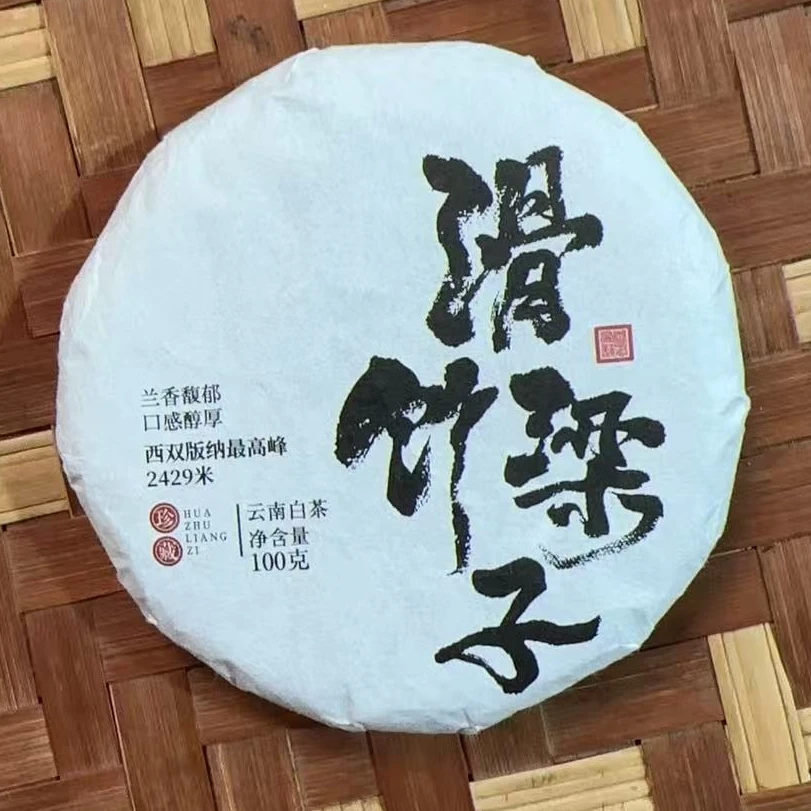 滑竹梁子
兰香馥郁
口感醇厚
西双版纳最高峰
2429米
珍藏
HUA
ZHU
LIANG
ZI
云南白茶
净含量
100克